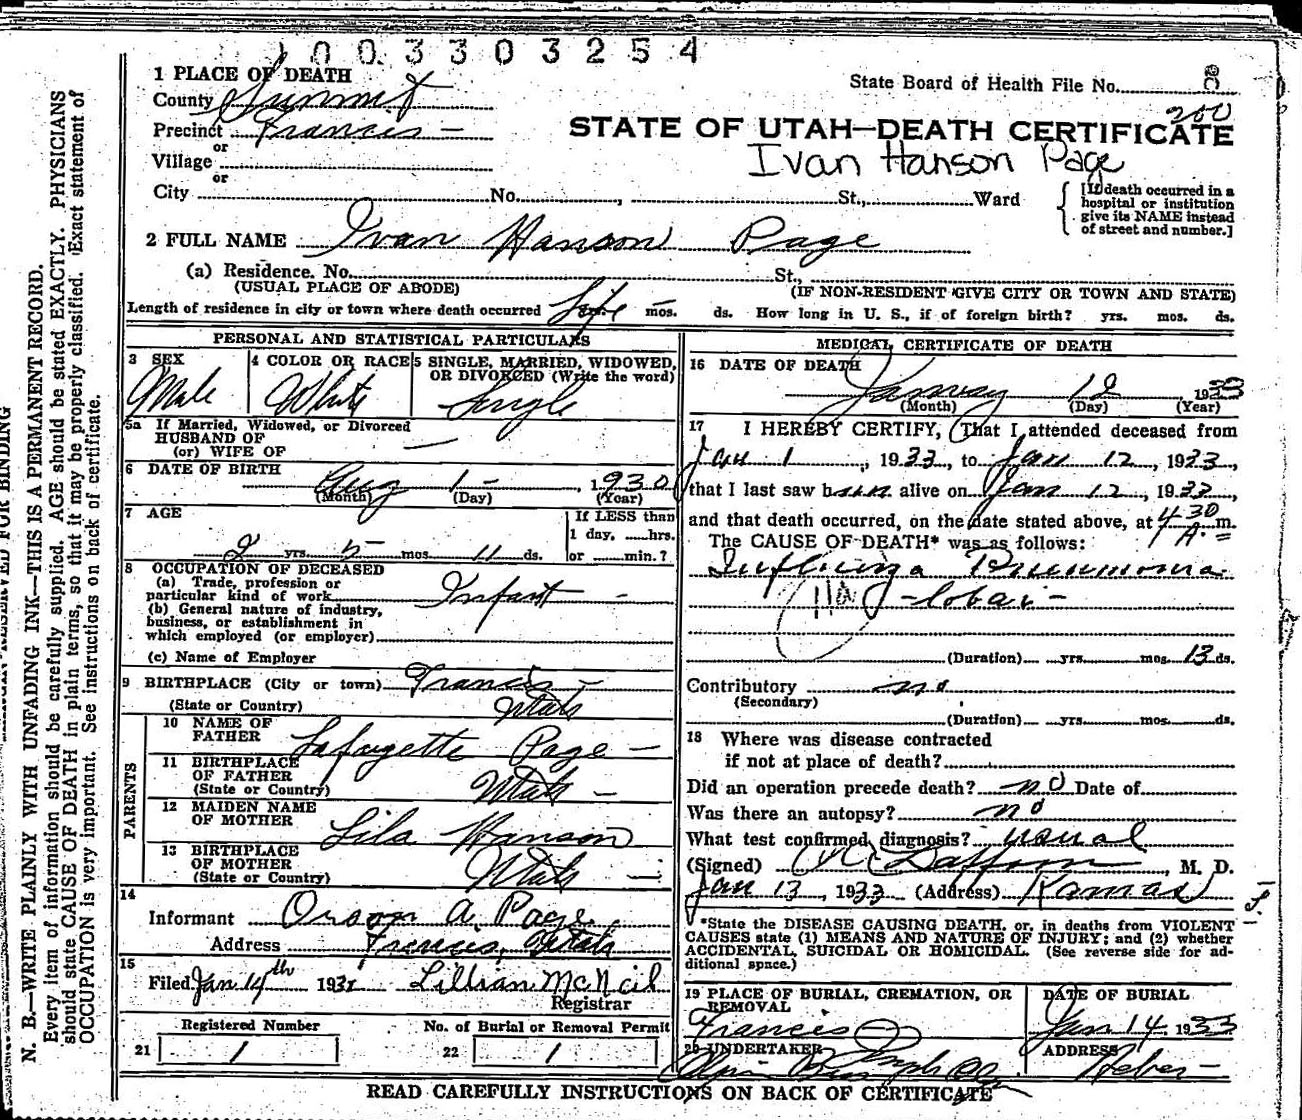 1003303254
1 PLACE OF DEATH
State Board of Health File No. 8
County Summit
200
Precinct Francis -
STATE OF UTAH—DEATH CERTIFICATE
or
Ivan Hanson Page
Village
or
City No. , St., Ward
[If death occurred in a
hospital or institution
give its NAME instead
of street and number.]
2 FULL NAME Ivan Hanson Page
(a) Residence. No. St.,
(USUAL PLACE OF ABODE) (IF NON-RESIDENT GIVE CITY OR TOWN AND STATE)
Length of residence in city or town where death occurred Life mos. ds. How long in U. S., if of foreign birth? yrs. mos. ds.
PERSONAL AND STATISTICAL PARTICULARS
3 SEX
Male
4 COLOR OR RACE
White
5 SINGLE, MARRIED, WIDOWED,
OR DIVORCED (Write the word)
Single
5a If Married, Widowed, or Divorced
HUSBAND OF
(or) WIFE OF —
6 DATE OF BIRTH Aug 1 - , 1930
(Month) (Day) (Year)
7 AGE
2 yrs. 5 mos. 11 ds.
If LESS than
1 day, hrs.
or min.?
8 OCCUPATION OF DECEASED
(a) Trade, profession or
particular kind of work Infant -
(b) General nature of industry,
business, or establishment in
which employed (or employer)
(c) Name of Employer
9 BIRTHPLACE (City or town) Francis -
(State or Country) Utah
PARENTS
10 NAME OF
FATHER Lafayette Page —
11 BIRTHPLACE
OF FATHER
(State or Country) Utah —
12 MAIDEN NAME
OF MOTHER Lila Hanson
13 BIRTHPLACE
OF MOTHER
(State or Country) Utah —
14
Informant Orson A. Page
Address Francis, Utah
15
Filed Jan 14th 1933 Lillian McNeil
Registrar
Registered Number
21 1
No. of Burial or Removal Permit
22 1
MEDICAL CERTIFICATE OF DEATH
16 DATE OF DEATH
January 12 1933
(Month) (Day) (Year)
17 I HEREBY CERTIFY, That I attended deceased from
Jan 1 , 1933, to Jan 12 , 1933,
that I last saw him alive on Jan 12 , 1933,
and that death occurred, on the date stated above, at 4 30 A. m.
The CAUSE OF DEATH* was as follows:
Influenza Pneumonia
11a - lobar -
(Duration) yrs. mos. 13 ds.
Contributory no
(Secondary)
(Duration) yrs. mos. ds.
18 Where was disease contracted
if not at place of death?
Did an operation precede death? no Date of
Was there an autopsy? no
What test confirmed diagnosis? usual
(Signed) , M. D.
Jan 13 , 1933 (Address) Kamas
*State the DISEASE CAUSING DEATH, or, in deaths from VIOLENT
CAUSES state (1) MEANS AND NATURE OF INJURY; and (2) whether
ACCIDENTAL, SUICIDAL OR HOMICIDAL. (See reverse side for ad-
ditional space.)
19 PLACE OF BURIAL, CREMATION, OR
REMOVAL
Francis
DATE OF BURIAL
Jan 14 1933
20 UNDERTAKER
ADDRESS
Heber -
READ CAREFULLY INSTRUCTIONS ON BACK OF CERTIFICATE
N. B.—WRITE PLAINLY WITH UNFADING INK—THIS IS A PERMANENT RECORD.
Every item of information should be carefully supplied. AGE should be stated EXACTLY. PHYSICIANS
should state CAUSE OF DEATH in plain terms, so that it may be properly classified. Exact statement of
OCCUPATION is very important. See instructions on back of certificate.